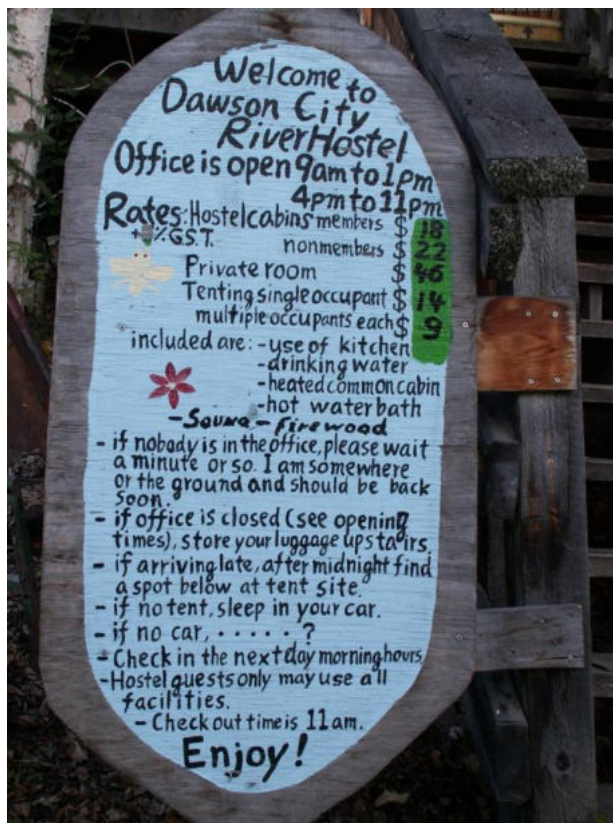 Welcome to
Dawson City
River Hostel
Office is open 9am to 1pm
4pm to 11pm
Rates: Hostel cabins members $ 18
+ % G.S.T. nonmembers $ 22
Private room $ 46
Tenting single occupant $ 14
multiple occupants each $ 9
included are: - use of kitchen
- drinking water
- heated common cabin
- hot water bath
- Sauna - Firewood
- if nobody is in the office, please wait
a minute or so. I am somewhere
or the ground and should be back
soon.
- if office is closed (see opening
times), store your luggage upstairs.
- if arriving late, after midnight find
a spot below at tent site.
- if no tent, sleep in your car.
- if no car, . . . . . ?
- Check in the next day morning hours.
- Hostel guests only may use all
facilities.
- Check out time is 11am.
Enjoy!